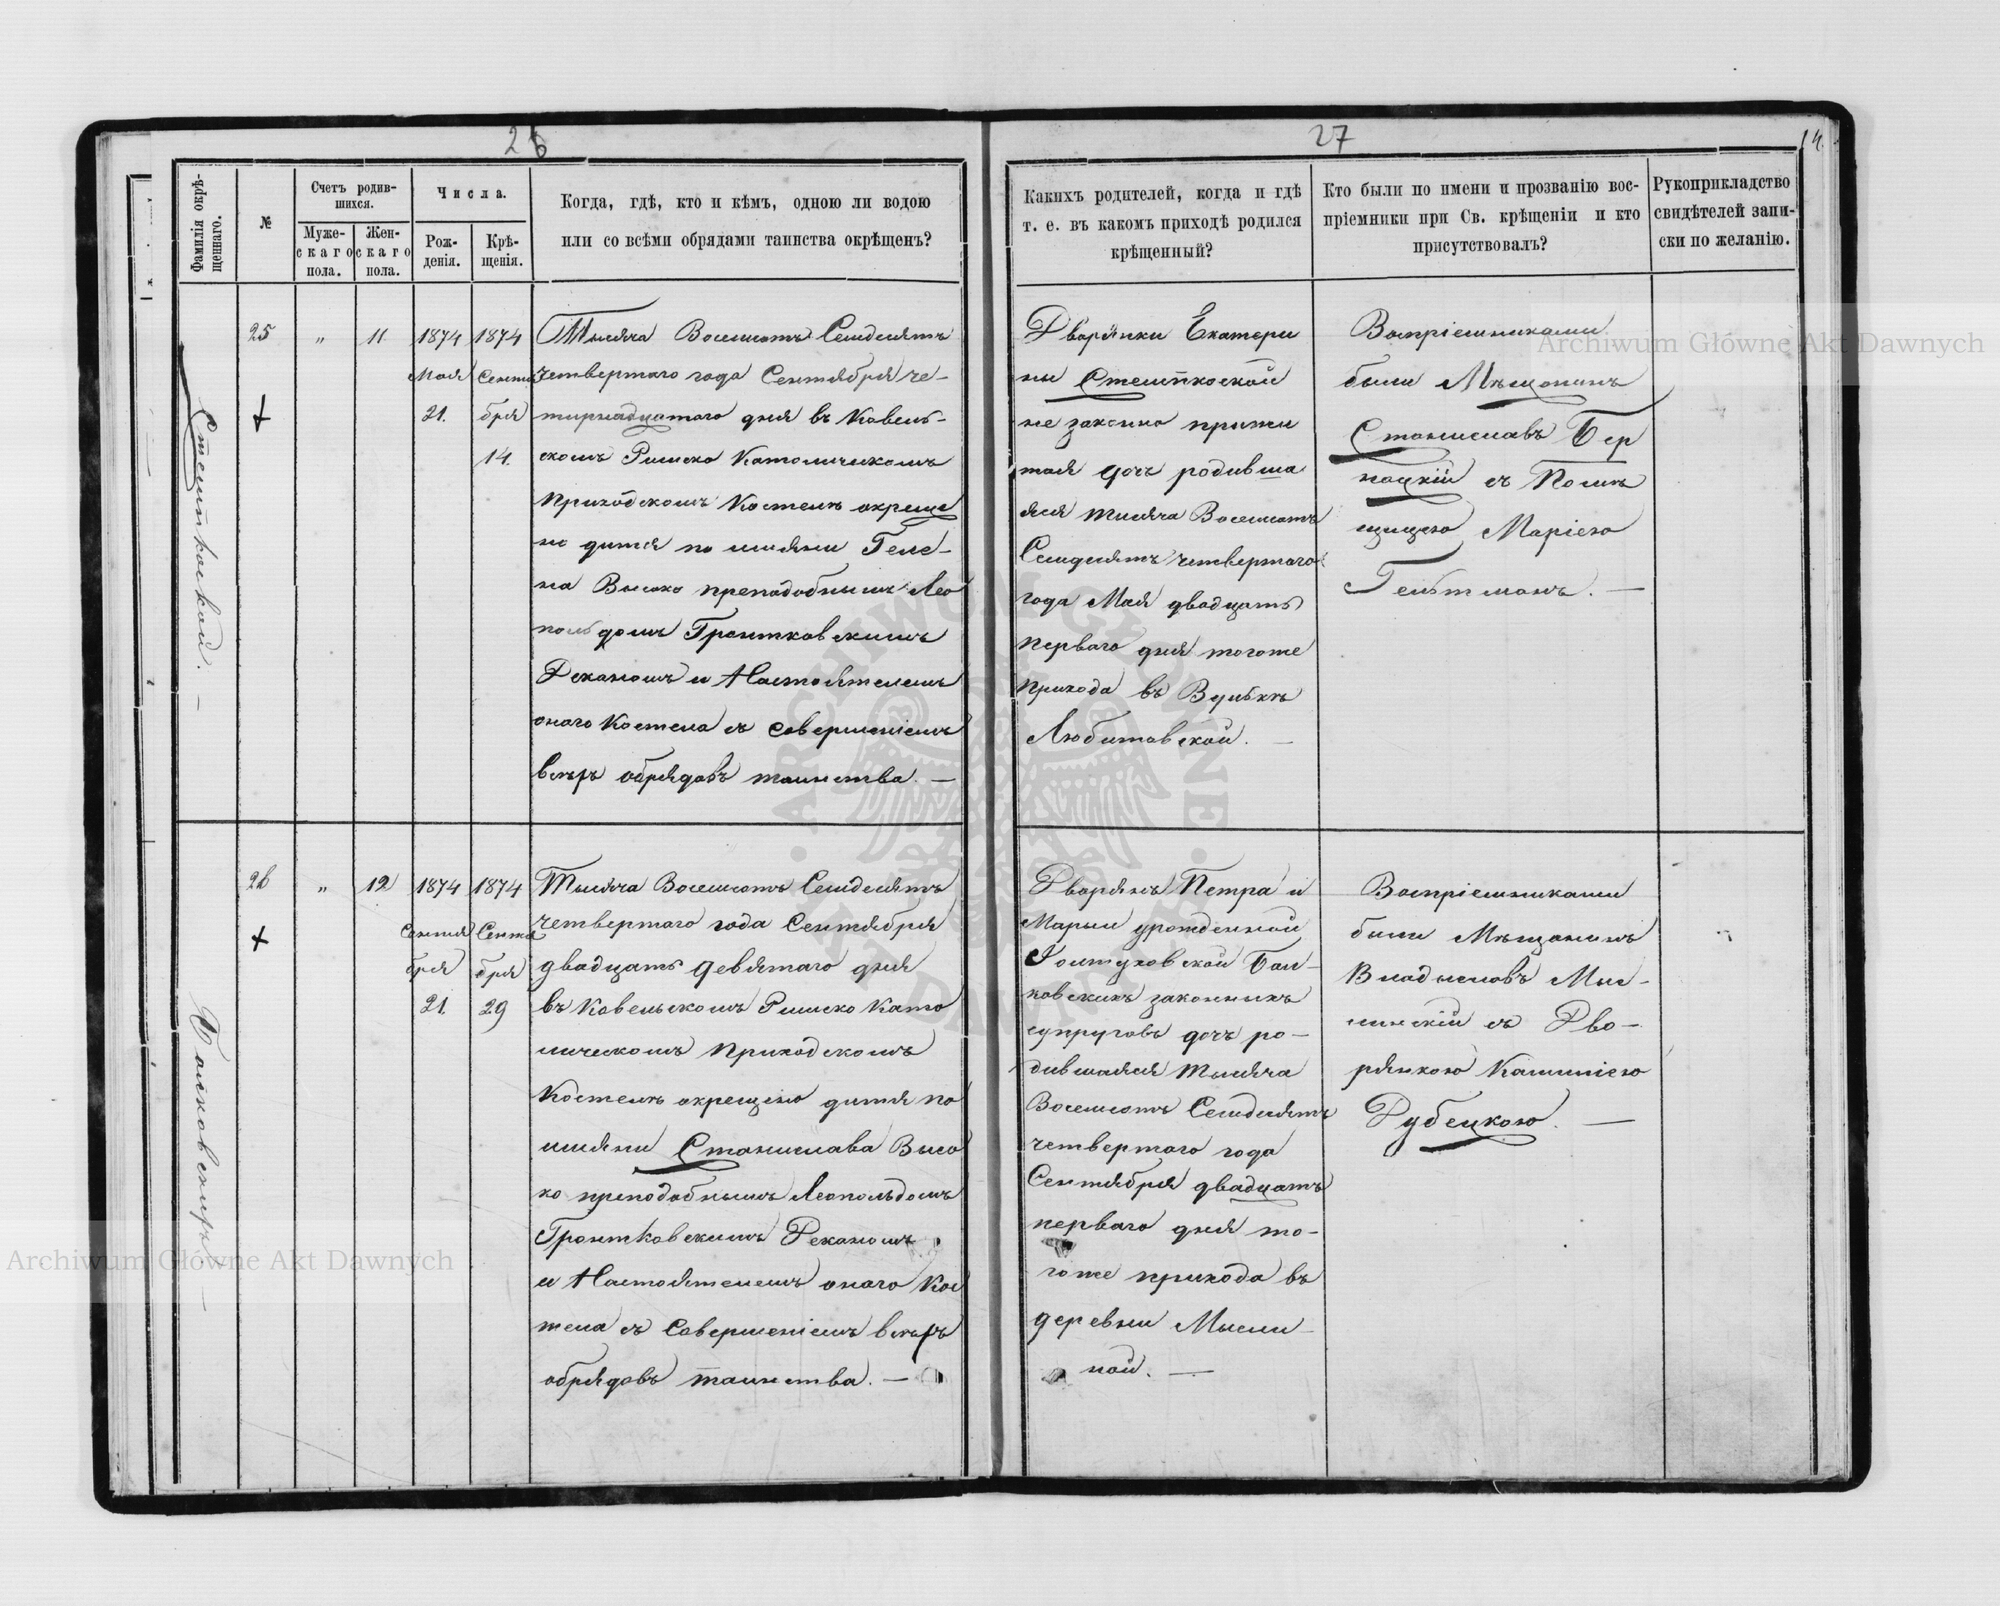 26
27
14.
Фамилія окрѣ-
щеннаго.
№
Счетъ родив-
шихся.
Муже-
скаго
пола.
Жен-
скаго
пола.
Числа.
Рож-
денія.
Крѣ-
щенія.
Когда, гдѣ, кто и кѣмъ, одною ли водою
или со всѣми обрядами таинства окрѣщенъ?
Какихъ родителей, когда и гдѣ
т. е. въ какомъ приходѣ родился
крѣщенный?
Кто были по имени и прозванію вос-
пріемники при Св. крѣщеніи и кто
присутствовалъ?
Рукоприкладство
свидѣтелей запи-
ски по желанію.
Стемпкоской. —
25
"
11
1874
Мая
21.
1874
Сентя
бря
14.
Тысяча Восемсотъ Семдесятъ
четвертаго года Сентября че-
тирнадцатаго дня въ Ковель-
скомъ Римско Католическомъ
Приходскомъ Костелѣ окреще
но дитя по имяни Геле-
на Высоко преподобнымъ Лео
польдомъ Гронтковскимъ
Деканомъ и Настоятелемъ
онаго Костела съ совершеніемъ
всѣхъ обрядовъ таинства. —
Дворянки Екатери
ны Стемпкоской
не законно прижи
тая дочь родивша
яся тисяча Восемсотъ
Семдесятъ четвертаго
года Мая двадцать
перваго дня тогоже
прихода въ Вулькѣ
Любитовской. —
Воспріемниками
были Мѣщанинъ
Станиславъ Бер
нацкій съ Помѣ
щицею Маріею
Гельтманъ. —
Балковскихъ —
26
"
12
1874
Сентя
бря
21.
1874
Сентя
бря
29
Тысяча Восемсотъ Семдесятъ
четвертаго года Сентября
двадцать девятаго дня
въ Ковельскомъ Римско Като
лическомъ Приходскомъ
Костелѣ окрещено дитя по
имяни Станислава Высо
ко преподобнымъ Леопольдомъ
Гронтковскимъ Деканомъ
и Настоятелемъ онаго Кос
тела съ совершеніемъ всѣхъ
обрядовъ таинства. —
Дворянъ Петра и
Марыи урожденной
Балковскихъ законныхъ
супруговъ дочь ро-
дившаяся тысяча
Восемсотъ Семдесятъ
четвертаго года
Сентября двадцать
перваго дня то-
гоже прихода въ
деревни Мыси
ной. —
Воспріемниками
были Мѣщанинъ
Владыславъ Мыс-
линскій съ Дво-
рянкою Камиліею
Дубецкою. —
Archiwum Główne Akt Dawnych
Archiwum Główne Akt Dawnych
ARCHIWUM GŁÓWNE AKT DAWNYCH